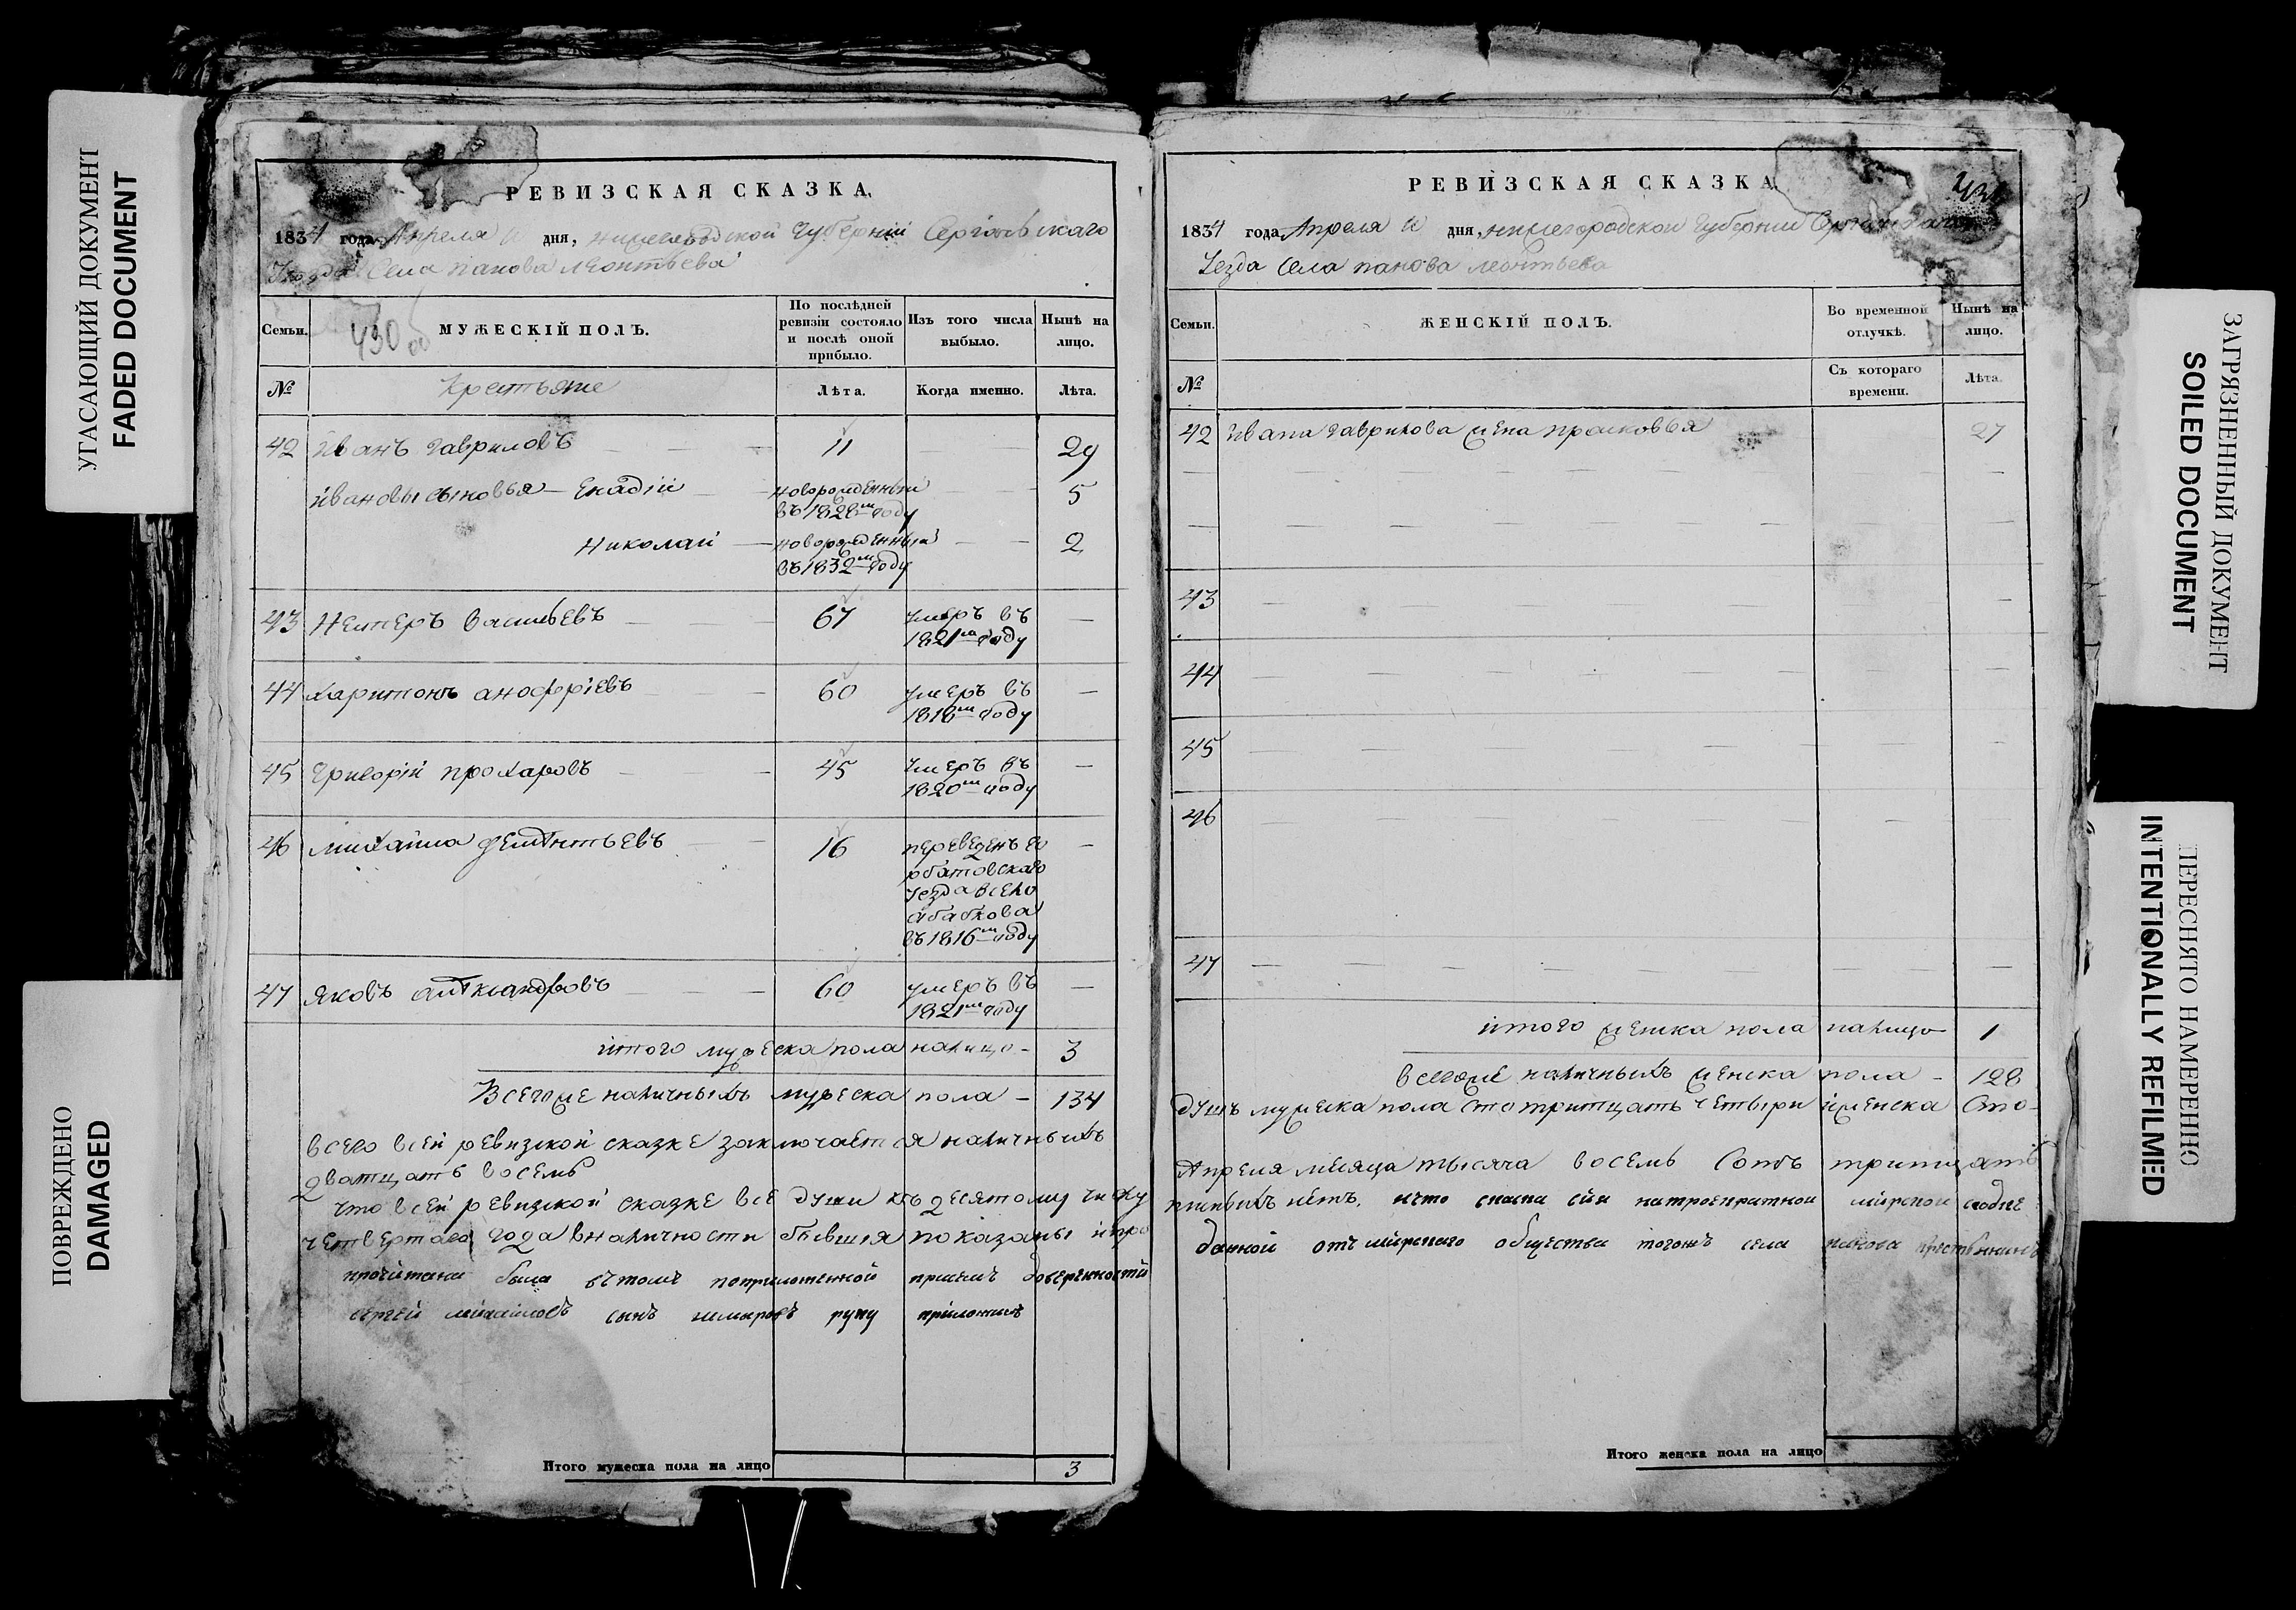 УГАСАЮЩИЙ ДОКУМЕНТ
FADED DOCUMENT
ПОВРЕЖДЕНО
DAMAGED
РЕВИЗСКАЯ СКАЗКА,
1834 года Апреля дня, нижегородской Губерніи Сергачьскаго
Уезда Села панова леонтьева
430
Семьи.
МУЖЕСКІЙ ПОЛЪ.
По послѣдней ревизіи состояло и послѣ оной прибыло.
Изъ того числа выбыло.
Нынѣ на лицо.
№
Крестьяне
Лѣта.
Когда именно.
Лѣта.
42 Иванъ Гавриловъ 11 29
ивановы сыновья Генадій новорожденный въ 1828м году 5
Николай новорожденный въ 1832м году 2
43 Нестеръ васильевъ 67 умеръ въ 1821м году
44 Харитонъ анофріевъ 60 умеръ въ 1818м году
45 Григорій прохаровъ 45 Умеръ въ 1820м году
46 михайла дементьевъ 16 переведенъ го
рбатовскаго
уезда всело
абабкова
въ 1816м году
47 яковъ александровъ 60 умеръ въ 1821м году
итого мужеска пола налицо 3
Всегоже наличныхъ мужеска пола 134
всего всей ревизской сказке заключается наличныхъ
дватцать восемь
что всей ревизской сказке все души къ десятому числу
четвертаго года вналичности бывшія показаны ипро
прочитана была
сергей михаиловъ сынъ руку приложилъ
Итого мужеска пола на лицо 3
РЕВИЗСКАЯ СКАЗКА
431
1834 года Апреля дня, нижегородской Губерніи
Уезда Села панова леонтьева
Семьи.
ЖЕНСКІЙ ПОЛЪ.
Во временной отлучкѣ.
Нынѣ на лицо.
№
Съ котораго времени.
Лѣта.
42 ивана гаврилова жена прасковья 27
43
44
45
46
47
итого женска пола налицо 1
всегоже наличныхъ женска пола 128
душъ мужеска пола сто тритцать четыри иженска Сто-
Апреля месяца тысяча восемь Сотъ тритцать
нетъ, ичто сказка сія натроекратной мірской сходке
данной отъ мірскаго общества тогожъ села панова крестьянинъ
Итого женска пола на лицо
ЗАГРЯЗНЕННЫЙ ДОКУМЕНТ
SOILED DOCUMENT
ПЕРЕСНЯТО НАМЕРЕННО
INTENTIONALLY REFILMED